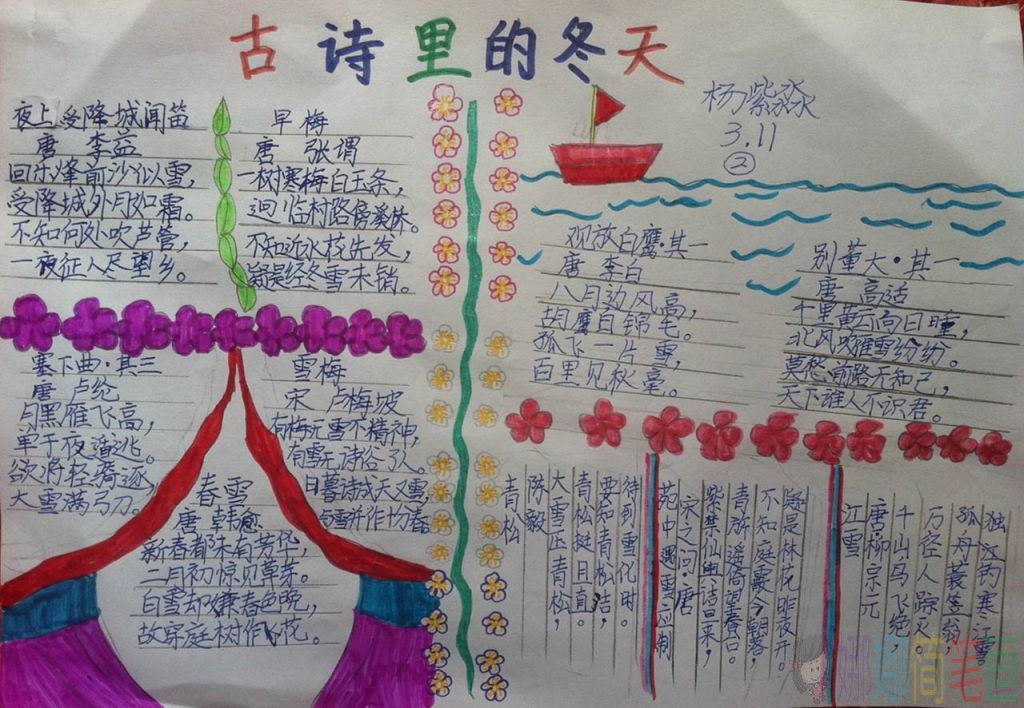 古诗里的冬天
杨紫淼
3.11
②
夜上受降城闻笛
唐 李益
回乐烽前沙似雪,
受降城外月如霜。
不知何处吹芦管,
一夜征人尽望乡。
早梅
唐 张谓
一树寒梅白玉条,
迥临村路傍溪林。
不知近水花先发,
疑是经冬雪未销。
塞下曲·其三
唐 卢纶
月黑雁飞高,
单于夜遁逃。
欲将轻骑逐,
大雪满弓刀。
雪梅
宋 卢梅坡
有梅无雪不精神,
有雪无诗俗了人。
日暮诗成天又雪,
与雪并作十分春
春雪
唐 韩愈
新春都未有芳华,
二月初惊见草芽。
白雪却嫌春色晚,
故穿庭树作飞花。
观放白鹰·其一
唐 李白
八月边风高,
胡鹰白锦毛。
孤飞一片雪,
百里见秋毫。
别董大·其一
唐 高适
千里黄云白日曛,
北风吹雁雪纷纷。
莫愁前路无知己,
天下谁人不识君。
青松
陈毅
大雪压青松,
青松挺且直。
要知青松洁,
待到雪化时。
苑中遇雪应制
宋之问·唐
紫禁仙舆诘旦来,
青旂遥倚望春台。
不知庭霰今朝落,
疑是林花昨夜开。
江雪
唐·柳宗元
千山鸟飞绝,
万径人踪灭。
孤舟蓑笠翁,
独钓寒江雪。
娜娜简笔画